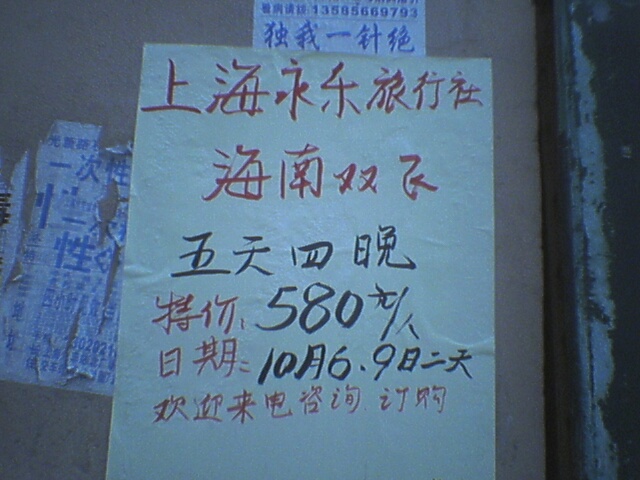 看病请拨:13585669793
独我一针绝
上海永乐旅行社
海南双飞
五天四晚
特价:580元/人
日期:10月6.9日二天
欢迎来电咨询.订购
一次性
性
性